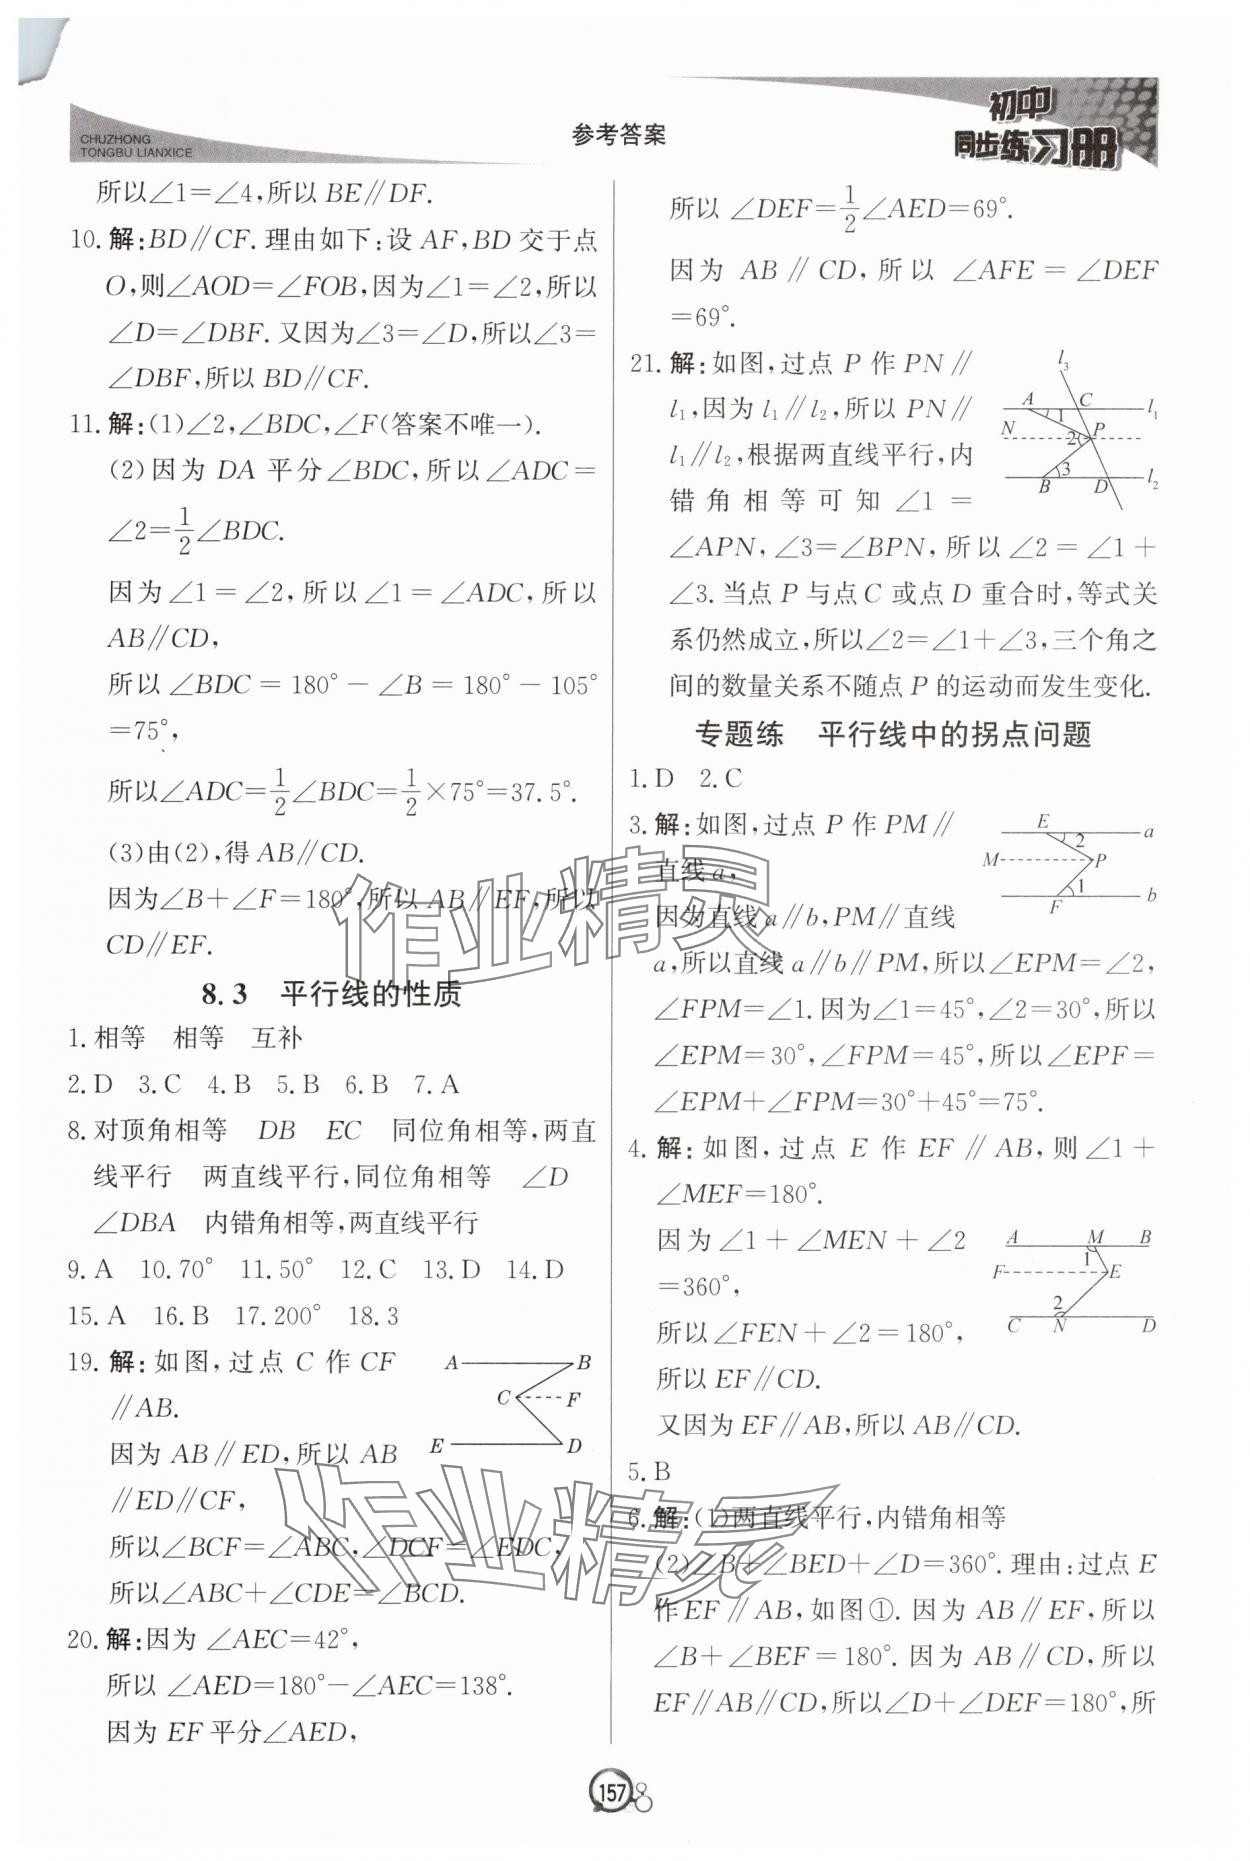 CHUZHONG
TONGBU LIANXICE
参考答案
初中
同步练习册
所以∠1=∠4,所以 BE∥DF.
10. 解:BD∥CF. 理由如下:设 AF,BD 交于点
O,则∠AOD=∠FOB,因为∠1=∠2,所以
∠D=∠DBF. 又因为∠3=∠D,所以∠3=
∠DBF,所以 BD∥CF.
11. 解:(1)∠2,∠BDC,∠F(答案不唯一).
(2)因为 DA 平分∠BDC,所以∠ADC=
∠2=1/2∠BDC.
因为∠1=∠2,所以∠1=∠ADC,所以
AB∥CD,
所以∠BDC=180°-∠B=180°-105°
=75°,
所以∠ADC=1/2∠BDC=1/2×75°=37.5°.
(3)由(2),得 AB∥CD.
因为∠B+∠F=180°,所以 AB∥EF,所以
CD∥EF.
8.3 平行线的性质
1. 相等 相等 互补
2. D 3. C 4. B 5. B 6. B 7. A
8. 对顶角相等 DB EC 同位角相等,两直
线平行 两直线平行,同位角相等 ∠D
∠DBA 内错角相等,两直线平行
9. A 10. 70° 11. 50° 12. C 13. D 14. D
15. A 16. B 17. 200° 18. 3
19. 解:如图,过点 C 作 CF
∥AB.
因为 AB∥ED,所以 AB
∥ED∥CF,
所以∠BCF=∠ABC,∠DCF=∠EDC,
所以∠ABC+∠CDE=∠BCD.
A B
C F
E D
20. 解:因为∠AEC=42°,
所以∠AED=180°-∠AEC=138°.
因为 EF 平分∠AED,
所以∠DEF=1/2∠AED=69°.
因为 AB∥CD,所以∠AFE=∠DEF
=69°.
21. 解:如图,过点 P 作 PN∥
l₁,因为 l₁∥l₂,所以 PN∥
l₁∥l₂,根据两直线平行,内
错角相等可知∠1=
∠APN,∠3=∠BPN,所以∠2=∠1+
∠3. 当点 P 与点 C 或点 D 重合时,等式关
系仍然成立,所以∠2=∠1+∠3,三个角之
间的数量关系不随点 P 的运动而发生变化.
l₃
A C l₁
1
N 2 P
3
B D l₂
专题练 平行线中的拐点问题
1. D 2. C
3. 解:如图,过点 P 作 PM∥
直线 a,
因为直线 a∥b,PM∥直线
a,所以直线 a∥b∥PM,所以∠EPM=∠2,
∠FPM=∠1. 因为∠1=45°,∠2=30°,所以
∠EPM=30°,∠FPM=45°,所以∠EPF=
∠EPM+∠FPM=30°+45°=75°.
E 2 a
M P
1
F b
4. 解:如图,过点 E 作 EF∥AB,则∠1+
∠MEF=180°.
因为∠1+∠MEN+∠2
=360°,
所以∠FEN+∠2=180°,
所以 EF∥CD.
又因为 EF∥AB,所以 AB∥CD.
A M B
1
F E
2
C N D
5. B
6. 解:(1)两直线平行,内错角相等
(2)∠B+∠BED+∠D=360°. 理由:过点 E
作EF∥AB,如图①. 因为 AB∥EF,所以
∠B+∠BEF=180°. 因为 AB∥CD,所以
EF∥AB∥CD,所以∠D+∠DEF=180°,所
作业精灵
作业精灵
157